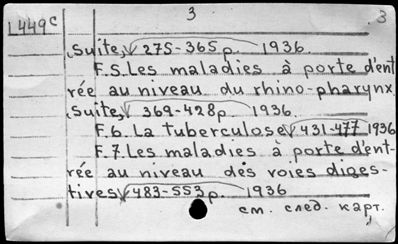 3 3
L449c
(Suite,) 275-365 p. 1936.
F.5. Les maladies à porte d'ent
rée au niveau du rhino-pharynx
(Suite,) 369-428 p. 1936.
F.6. La tuberculose 431-477 1936
F.7. Les maladies à porte d'ent-
rée au niveau des voies diges-
tives 483-553 p. 1936
см. след. карт.